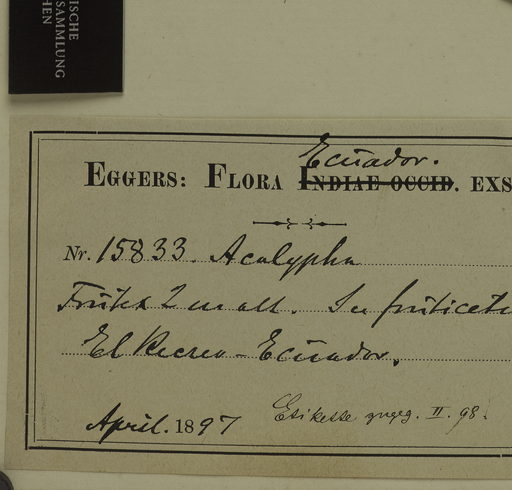 ISCHE
SAMMLUNG
HEN
Ecuador.
EGGERS: FLORA INDIAE OCCID. EXS
Nr. 15833. Acalypha
Frutex 2 m alt. In fruticetu
El Recreo - Ecuador.
April. 1897
Etikette gegeg. II. 98.